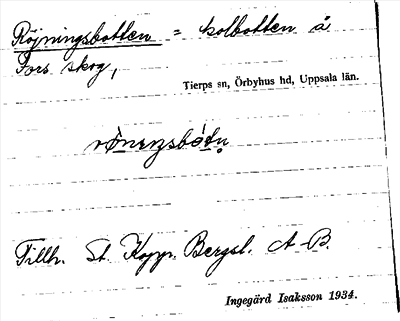 Röjningsbotten = kolbotten å
Fors skog,
Tierps sn, Örbyhus hd, Uppsala län.
Tillh. St. Kopp. Bergsl. A-B.
Ingegärd Isaksson 1934.